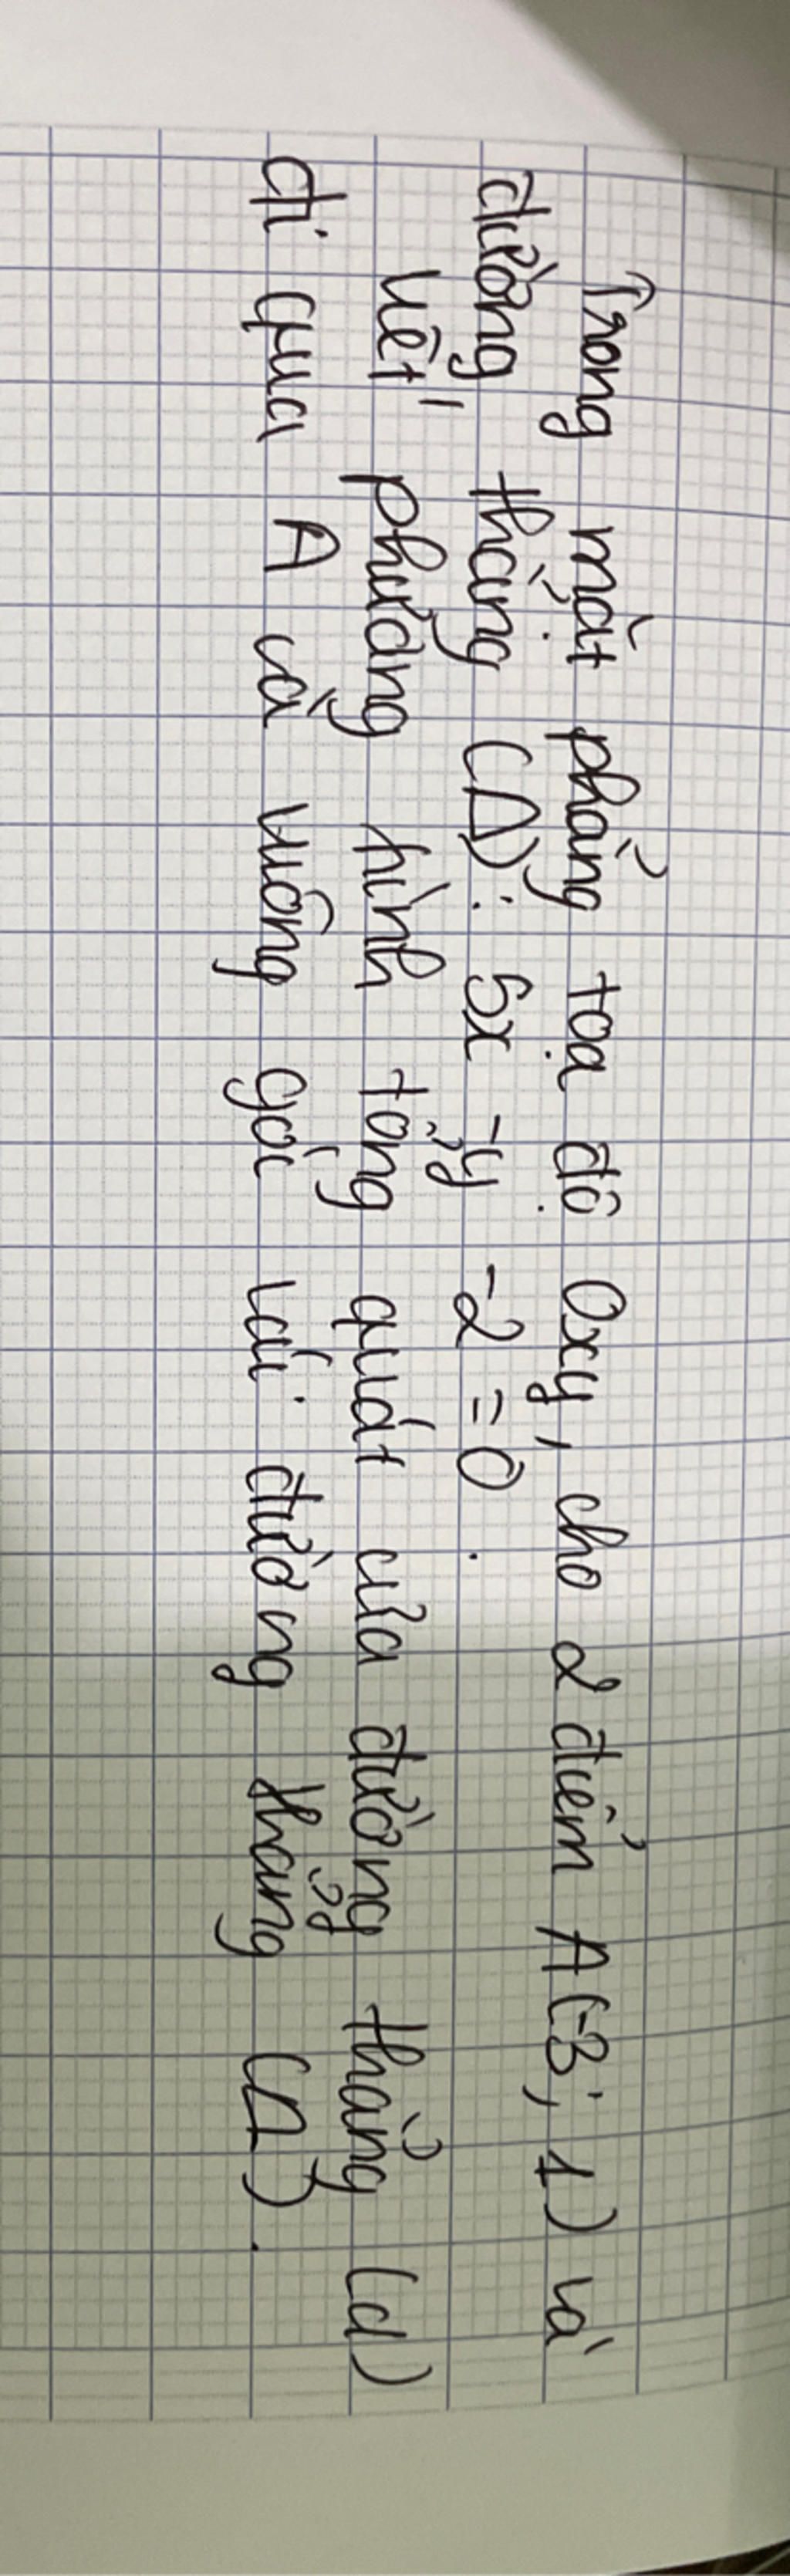 Trong mặt phẳng tọa độ Oxy, cho 2 điểm A(-3; 1) và
đường thẳng (Δ): 5x -y -2 = 0.
Viết phương hình tổng quát của đường thẳng (d)
đi qua A và vuông góc với đường thẳng (Δ).